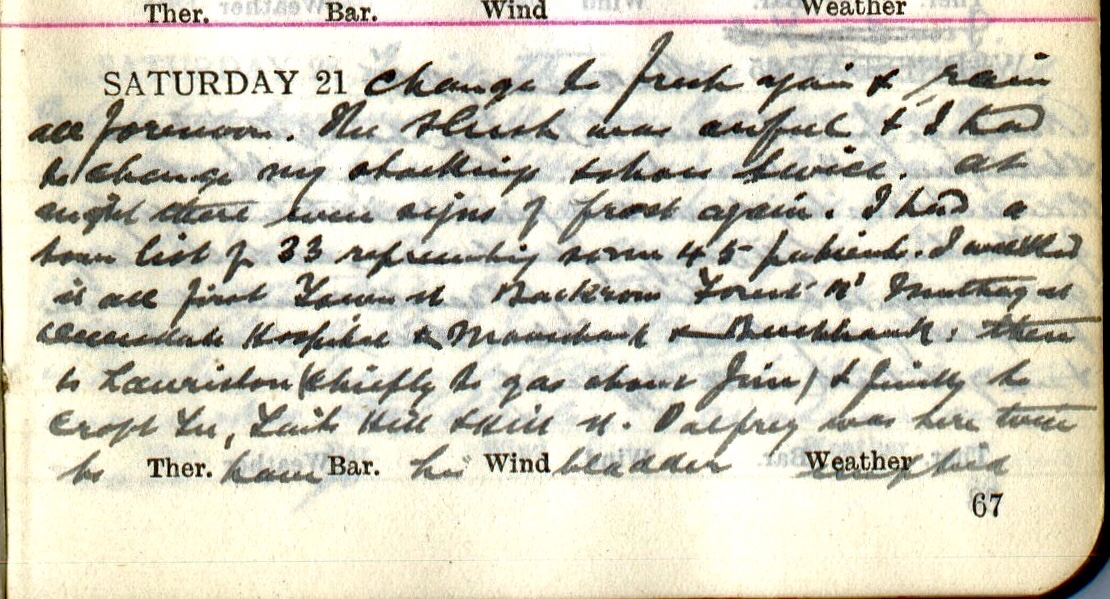 Ther. Bar. Wind Weather
SATURDAY 21 Change to fresh again & rain
all forenoon. The slush was awful & I had
to change my stockings & shoes twice. At
night there were signs of frost again. I had a
town list of 33 representing some 45 patients. I walked
it all first Town St Backrow Forest Rd
Hospital & & Buckhank: then
to Lauriston (chiefly to gas about Jim) & finally to
Croft Hill & Hill St. Palfrey was here twice
to have his bladder emptied
Ther. Bar. Wind Weather
67